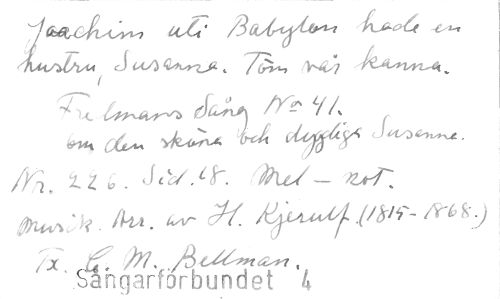 Joachim uti Babylon hade en
hustru, Susanna. Töm vår kanna.
Fredmans Sång No 41.
om den sköna och dygdiga Susanna.
Nr. 226. Sid. 18. Mel - not.
musik. Arr. av H. Kjerulf (1815-1868.)
Tx. C. M. Bellman.
Sångarförbundet 4